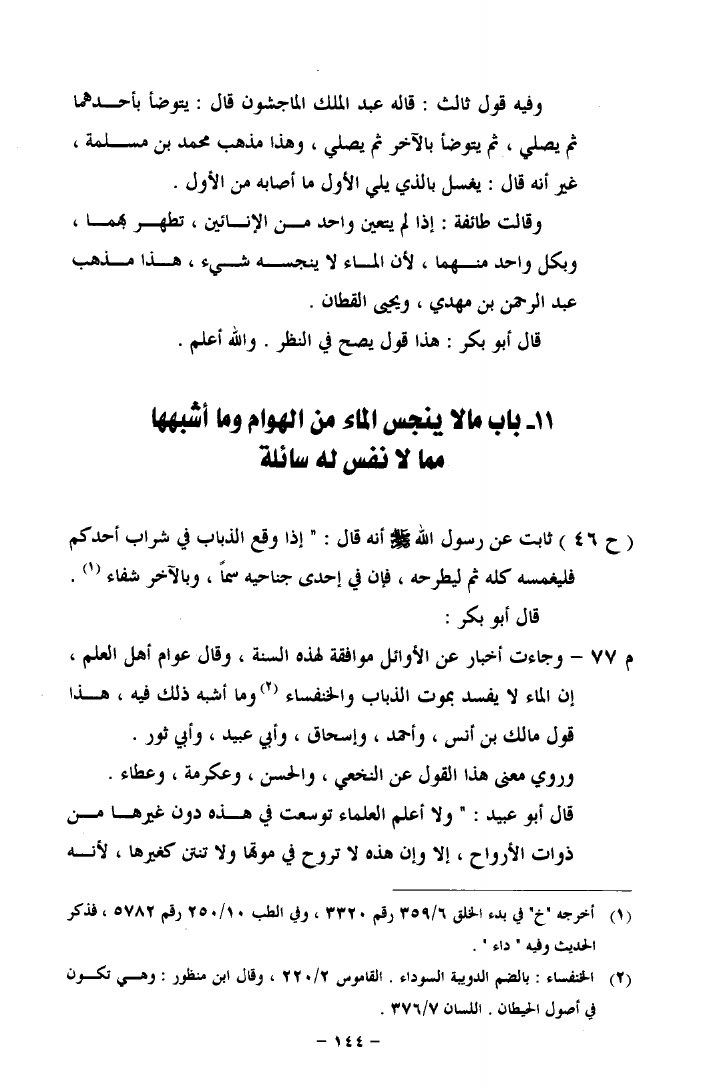 وفيه قول ثالث : قاله عبد الملك الماجشون قال : يتوضأ بأحـــدهما
ثم يصلي ، ثم يتوضأ بالآخر ثم يصلي ، وهذا مذهب محمد بن مســلمة ،
غير أنه قال : يغسل بالذي يلي الأول ما أصابه من الأول .
وقالت طائفة : إذا لم يتعين واحد مــن الإنــائين ، تطهــر بهمــا ،
وبكل واحد منــهما ، لأن المــاء لا ينجســه شــيء ، هــذا مــذهب
عبد الرحمن بن مهدي ، ويحيى القطان .
قال أبو بكر : هذا قول يصح في النظر . والله أعلم .
١١ـ باب مالا ينجس الماء من الهوام وما أشبهها
مما لا نفس له سائلة
( ح ٤٦ ) ثابت عن رسول الله ﷺ أنه قال : " إذا وقع الذباب في شراب أحدكم
فليغمسه كله ثم ليطرحه ، فإن في إحدى جناحيه سماً ، وبالآخر شفاء (١) .
قال أبو بكر :
م ٧٧ – وجاءت أخبار عن الأوائل موافقة لهذه السنة ، وقال عوام أهل العلم ،
إن الماء لا يفسد بموت الذباب والخنفساء (٢) وما أشبه ذلك فيه ، هــذا
قول مالك بن أنس ، وأحمد ، وإسحاق ، وأبي عبيد ، وأبي ثور .
وروي معنى هذا القول عن النخعي ، والحسن ، وعكرمة ، وعطاء .
قال أبو عبيد : " ولا أعلم العلماء توسعت في هــذه دون غيرهــا مــن
ذوات الأرواح ، إلا وإن هذه لا تروح في موتها ولا تنتن كغيرها ، لأنــه
(١) أخرجه "خ" في بدء الخلق ٣٥٩/٦ رقم ٣٣٢٠ ، وفي الطب ٢٥٠/١٠ رقم ٥٧٨٢ ، فذكر
الحديث وفيه " داء " .
(٢) الخنفساء : بالضم الدويبة السوداء . القاموس ٢٢٠/٢ ، وقال ابن منظور : وهــي تكــون
في أصول الحيطان . اللسان ٣٧٦/٧ .
– ١٤٤ –